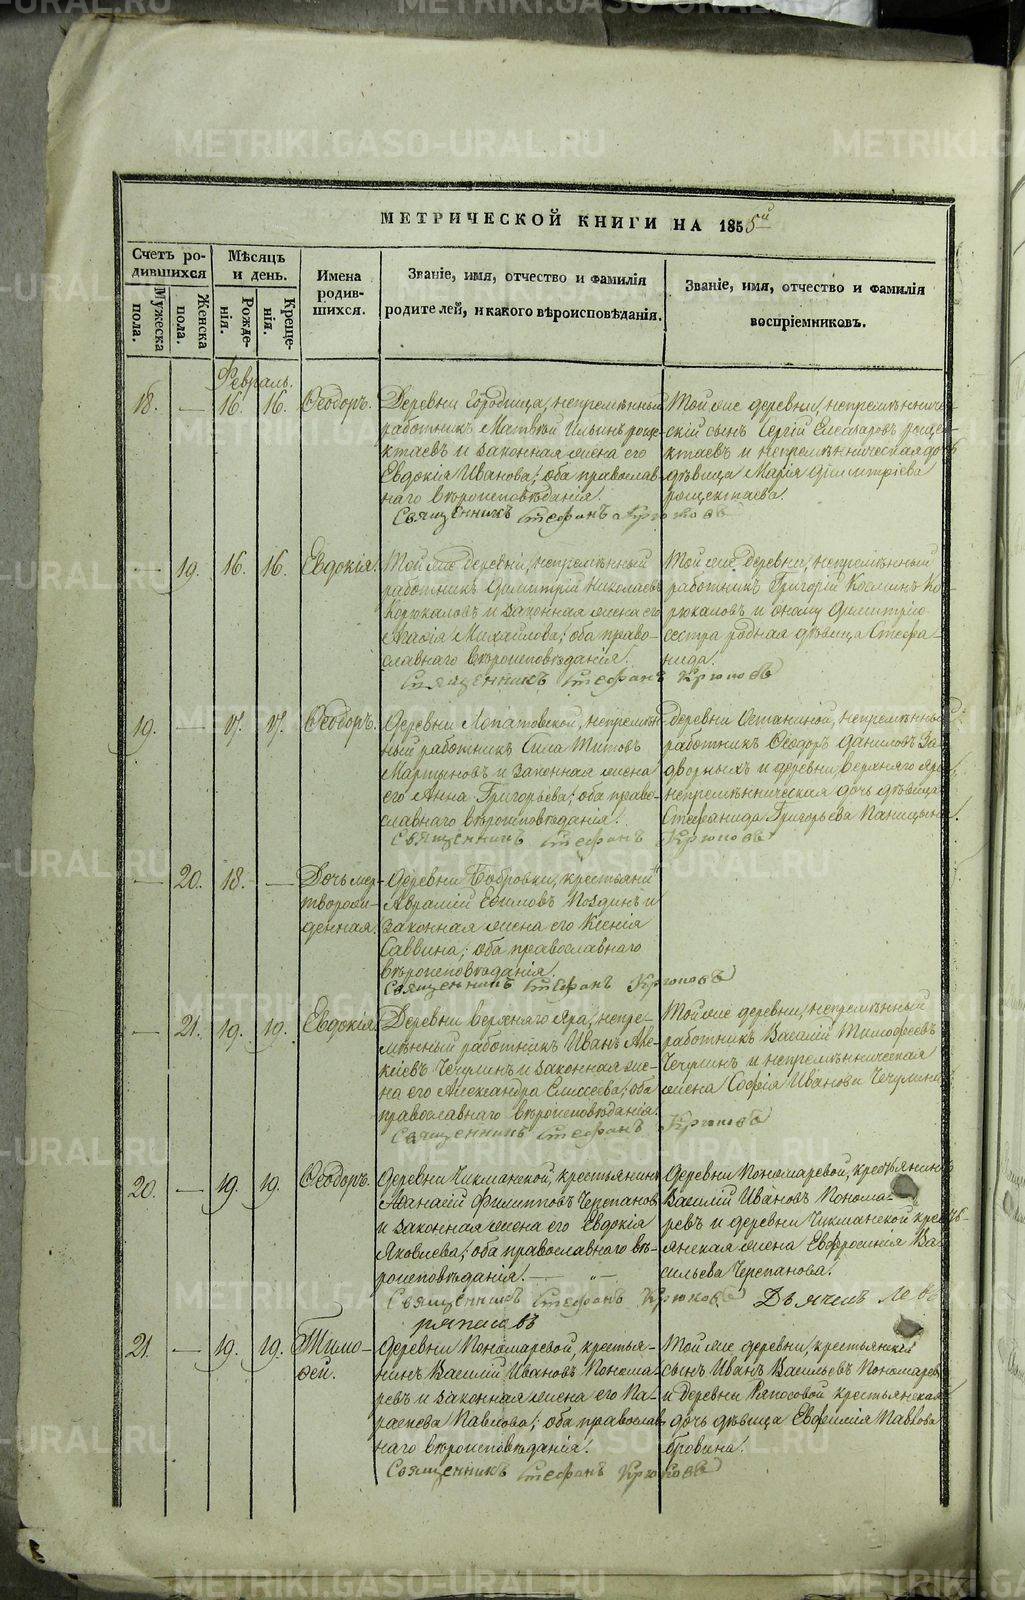 МЕТРИЧЕСКОЙ КНИГИ НА 1855й
Счетъ ро-
дившихся
Мѣсяцъ
и день.
Имена
родив-
шихся.
Званіе, имя, отчество и фамилія
родителей, и какого вѣроисповѣданія.
Званіе, имя, отчество и фамилія
воспріемниковъ.
Мужеска
пола.
Женска
пола.
Рожде-
нія.
Креще-
нія.
Февраль.
18. — 16. 16. Ѳеодоръ.
Деревни Городища, непремѣнный
работникъ Матвѣй Ильинъ рощек-
ктаевъ и законная жена его
Евдокія Иванова; оба православ-
наго вѣроисповѣданія.
Той же деревни, непремѣнниче-
скій сынъ Сергій Елеазаровъ рощек-
ктаевъ и непремѣнническая дочь
дѣвица Марія Димитріева
рощектаева.
Священникъ Стефанъ Крюковъ
— 19. 16. 16. Евдокія.
Той же деревни, непремѣнный
работникъ Димитрій Николаевъ
Корюкаловъ и законная жена его
Агафія Михайлова; оба право-
славнаго вѣроисповѣданія.
Той же деревни, непремѣнный
работникъ Григорій Козминъ Ко-
рюкаловъ и оному Димитрію
сестра родная дѣвица Стефа-
нида.
Священникъ Стефанъ Крюковъ
19. — 17. 17. Ѳеодоръ.
Деревни Лопатовской, непремѣн-
ный работникъ Сила Титовъ
Мартыновъ и законная жена
его Анна Григорьева; оба право-
славнаго вѣроисповѣданія.
деревни Останиной, непремѣнный
работникъ Ѳеодоръ Даниловъ За-
дворныхъ и деревни Верхняго Яра,
непремѣнническая дочь дѣвица
Стефанида Григорьева Паницына.
Священникъ Стефанъ Крюковъ
— 20. 18. — Дочь мер-
творож-
денная.
деревни Бобровки, крестьянинъ
Авраамій Ефимовъ Поздинъ и
законная жена его Ксенія
Саввина; оба православнаго
вѣроисповѣданія.
Священникъ Стефанъ Крюковъ
— 21. 19. 19. Евдокія.
Деревни Верхняго Яра, непре-
мѣнный работникъ Иванъ Аве-
кіевъ Чечулинъ и законная же-
на его Александра Елисеева; оба
православнаго вѣроисповѣданія.
Той же деревни, непремѣнный
работникъ Василій Тимофеевъ
Чечулинъ и непремѣнническая
жена Софія Иванова Чечулина.
Священникъ Стефанъ Крюковъ
20. — 19. 19. Ѳеодоръ.
деревни Чикманской, крестьянинъ
Аѳанасій Филипповъ Черепановъ
и законная жена его Евдокія
Яковлева; оба православнаго вѣ-
роисповѣданія.
деревни Пономаревой, крестьянинъ
Василій Ивановъ Понома-
ревъ и деревни Чикманской кресть-
янская жена Евфросинія Ва-
сильева Черепанова.
Священникъ Стефанъ Крюковъ Дьячекъ Левъ
ряпасовъ
21. — 19. 19. Тимо-
ѳей.
деревни Пономаревой, крестья-
нинъ Василій Ивановъ Понома-
ревъ и законная жена его Па-
раскева Павлова; оба православ-
наго вѣроисповѣданія.
Той же деревни, крестьянскій
сынъ Иванъ Васильевъ Пономаревъ
и деревни Ряпосовой крестьянская
дочь дѣвица Евфимія Павлова
бровина.
Священникъ Стефанъ Крюковъ
METRIKI.GASO-URAL.RU